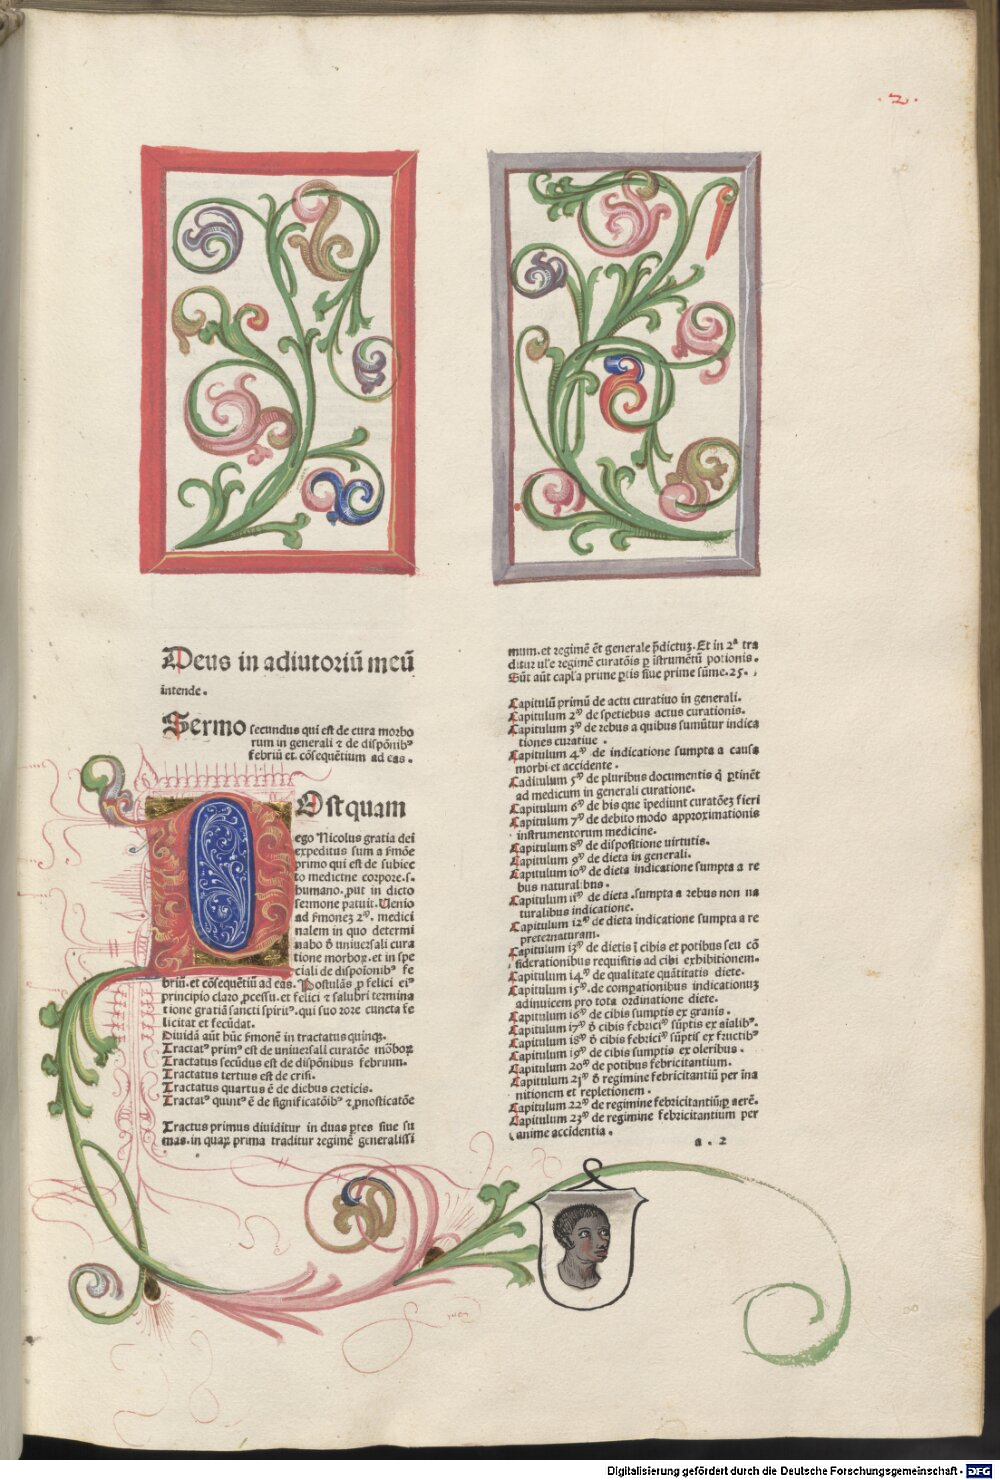 .2.
Deus in adiutoriū meū
intende.
Sermo secundus qui est de cura morbo
rum in generali ⁊ de dispōnibꝰ
febriū et cōsequētium ad eas.
POstquam
ego Nicolus gratia dei
expeditus sum a ẜmōe
primo qui est de subiec
to medicine corpore.s.
humano. ꝓut in dicto
sermone patuit. Uenio
ad ẜmonez 2ꝰ. medici
nalem in quo determi
nabo ꝺ vniuersali cura
tione morboꝝ. et in spe
ciali de dispoīonibꝰ fe
briū. et cōsequētiū ad eas. Postulās ꝓ felici eiꝰ
principio claro ꝓcessu. et felici ⁊ salubri termina
tione gratiā sancti spiritꝰ. qui suo rore cuncta fe
licitat et fecūdat.
Diuidā aūt hūc ẜmonē in tractatus quinqꝫ.
Tractatꝰ primꝰ est de uniuersali curatōe mōboꝝ
Tractatus secūdus est de dispōnibus febrium.
Tractatus tertius est de crisi.
Tractatus quartus ē de diebus creticis.
Tractatꝰ quintꝰ ē de significatōibꝰ ⁊ ꝓnosticatōe
Tractus primus diuiditur in duas ꝑtes siue su
mas. in quaꝝ prima traditur regimē generalissi
mum. et regimē ēt generale p̄dictuꝫ. Et in 2ª tra
ditur ul'e regimē curatōis ꝑ īstrumētū potionis.
Sūt aūt capl'a prime ꝑtis siue prime sūme. 25.
Capitulū primū de actu curatiuo in generali.
Capitulum 2ꝰ de spetiebus actus curationis.
Capitulum 3ꝰ de rebus a quibus sumūtur indica
tiones curatiue.
Capitulum 4ꝰ de indicatione sumpta a causa
morbi et accidente.
Caditulum 5ꝰ de pluribus documentis q̄ ꝑtinēt
ad medicum in generali curatione.
Capitulum 6ꝰ de his que īpediunt curatōeꝫ fieri
Capitulum 7ꝰ de debito modo approximationis
instrumentorum medicine.
Capitulum 8ꝰ de dispositione uirtutis.
Capitulum 9ꝰ de dieta in generali.
Capitulum 10ꝰ de dieta indicatione sumpta a re
bus naturalibus.
Capitulum 11ꝰ de dieta .sumpta a rebus non na
turalibus indicatione.
Capitulum 12ꝰ de dieta indicatione sumpta a re
preternaturam.
Capitulum 13ꝰ de dietis ī cibis et potibus seu cō
siderationibus requisitis ad cibi exhibitionem.
Capitulum 14ꝰ de qualitate quātitatis diete.
Capitulum 15ꝰ. de comꝑationibus indicationuꝫ
adinuicem pro tota ordinatione diete.
Capitulum 16ꝰ de cibis sumptis ex granis.
Capitulum 17ꝰ ꝺ cibis febriciꝰ sūptis ex aialibꝰ.
Capitulum 18ꝰ ꝺ cibis febriciꝰ sūptis ex fructibꝰ
Capitulum 19ꝰ de cibis sumptis ex oleribus.
Capitulum 20ꝰ de potibus febricitantium.
Capitulum 21ꝰ ꝺ regimine febricitantiū per īna
nitionem et repletionem.
Capitulum 22ꝰ de regimine febricitantiūꝗ aerē.
Capitulum 23ꝰ de regimine febricitantium per
anime accidentia.
a . 2
Digitalisierung gefördert durch die Deutsche Forschungsgemeinschaft - DFG